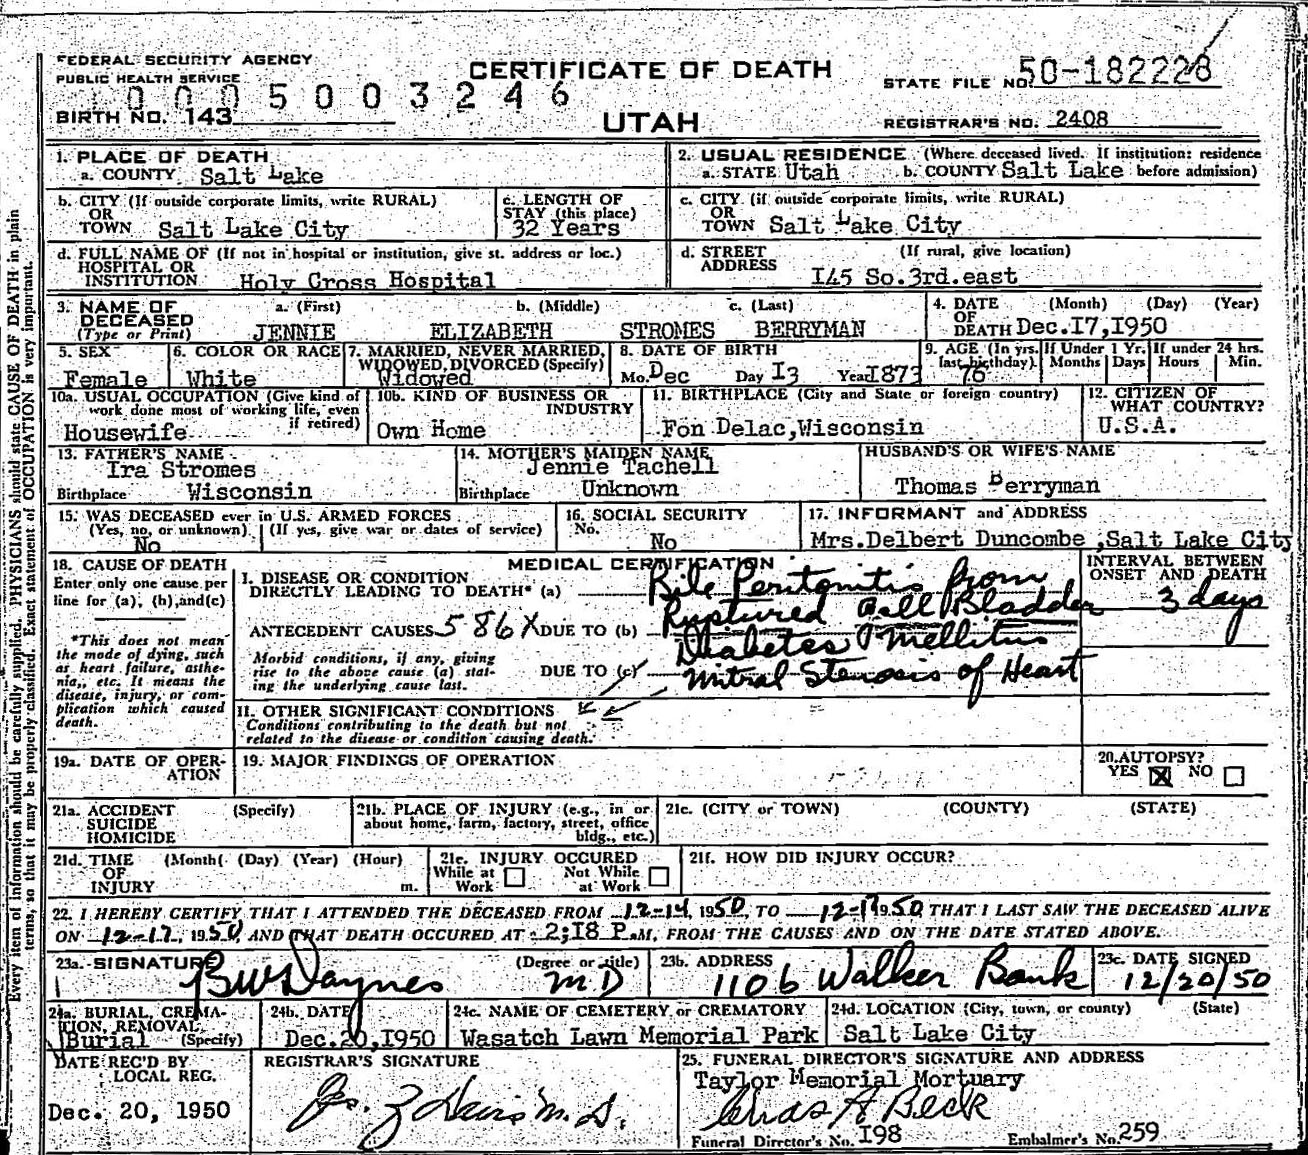 FEDERAL SECURITY AGENCY
PUBLIC HEALTH SERVICE
CERTIFICATE OF DEATH
STATE FILE NO. 50-182228
0005003246
BIRTH NO. 143
UTAH
REGISTRAR'S NO. 2408
Every item of information should be carefully supplied. PHYSICIANS should state CAUSE OF DEATH in plain
terms, so that it may be properly classified. Exact statement of OCCUPATION is very important.
1. PLACE OF DEATH
a. COUNTY Salt Lake
2. USUAL RESIDENCE (Where deceased lived. If institution: residence
a. STATE Utah b. COUNTY Salt Lake before admission)
b. CITY (If outside corporate limits, write RURAL)
OR
TOWN Salt Lake City
c. LENGTH OF
STAY (this place)
32 Years
c. CITY (if outside corporate limits, write RURAL)
OR
TOWN Salt Lake City
d. FULL NAME OF (If not in hospital or institution, give st. address or loc.)
HOSPITAL OR
INSTITUTION Holy Cross Hospital
d. STREET (If rural, give location)
ADDRESS I45 So.3rd.east
3. NAME OF a. (First) b. (Middle) c. (Last)
DECEASED
(Type or Print) JENNIE ELIZABETH STROMES BERRYMAN
4. DATE (Month) (Day) (Year)
OF
DEATH Dec.I7,I950
5. SEX
Female
6. COLOR OR RACE
White
7. MARRIED, NEVER MARRIED,
WIDOWED, DIVORCED (Specify)
Widowed
8. DATE OF BIRTH
Mo. Dec Day I3 Year I873
9. AGE (In yrs.
last birthday)
76
If Under 1 Yr.
Months Days
If under 24 hrs.
Hours Min.
10a. USUAL OCCUPATION (Give kind of
work done most of working life, even
if retired)
Housewife
10b. KIND OF BUSINESS OR
INDUSTRY
Own Home
11. BIRTHPLACE (City and State or foreign country)
Fon Delac,Wisconsin
12. CITIZEN OF
WHAT COUNTRY?
U.S.A.
13. FATHER'S NAME
Ira Stromes
Birthplace Wisconsin
14. MOTHER'S MAIDEN NAME
Jennie Tachell
Birthplace Unknown
HUSBAND'S OR WIFE'S NAME
Thomas Berryman
15. WAS DECEASED ever in U.S. ARMED FORCES
(Yes, no, or unknown) (If yes, give war or dates of service)
No
16. SOCIAL SECURITY
No.
No
17. INFORMANT and ADDRESS
Mrs.Delbert Duncombe ,Salt Lake City
18. CAUSE OF DEATH
Enter only one cause per
line for (a), (b), and (c)
*This does not mean
the mode of dying, such
as heart failure, asthe-
nia, etc. It means the
disease, injury, or com-
plication which caused
death.
MEDICAL CERTIFICATION
I. DISEASE OR CONDITION
DIRECTLY LEADING TO DEATH* (a) Bile Peritonitis from
Ruptured Gall Bladder
ANTECEDENT CAUSES 586X DUE TO (b) Diabetes Mellitus
Morbid conditions, if any, giving
rise to the above cause (a) stat-
ing the underlying cause last.
DUE TO (c) Mitral Stenosis of Heart
II. OTHER SIGNIFICANT CONDITIONS
Conditions contributing to the death but not
related to the disease or condition causing death.
INTERVAL BETWEEN
ONSET AND DEATH
3 days
19a. DATE OF OPER-
ATION
19. MAJOR FINDINGS OF OPERATION
20. AUTOPSY?
YES X NO
21a. ACCIDENT (Specify)
SUICIDE
HOMICIDE
21b. PLACE OF INJURY (e.g., in or
about home, farm, factory, street, office
bldg., etc.)
21c. (CITY or TOWN) (COUNTY) (STATE)
21d. TIME (Month) (Day) (Year) (Hour)
OF
INJURY m.
21e. INJURY OCCURED
While at Not While
Work at Work
21f. HOW DID INJURY OCCUR?
22. I HEREBY CERTIFY THAT I ATTENDED THE DECEASED FROM 12-14, 1950, TO 12-17 1950 THAT I LAST SAW THE DECEASED ALIVE
ON 12-17, 1950, AND THAT DEATH OCCURED AT 2;I8 P.M, FROM THE CAUSES AND ON THE DATE STATED ABOVE.
23a. SIGNATURE (Degree or title)
BW Daynes MD
23b. ADDRESS
1106 Walker Bank
23c. DATE SIGNED
12/20/50
24a. BURIAL, CREMA-
TION, REMOVAL
Burial (Specify)
24b. DATE
Dec.20,I950
24c. NAME OF CEMETERY or CREMATORY
Wasatch Lawn Memorial Park
24d. LOCATION (City, town, or county) (State)
Salt Lake City
DATE REC'D BY
LOCAL REG.
Dec. 20, 1950
REGISTRAR'S SIGNATURE
25. FUNERAL DIRECTOR'S SIGNATURE AND ADDRESS
Taylor Memorial Mortuary
Chas A Beck
Funeral Director's No. I98 Embalmer's No. 259